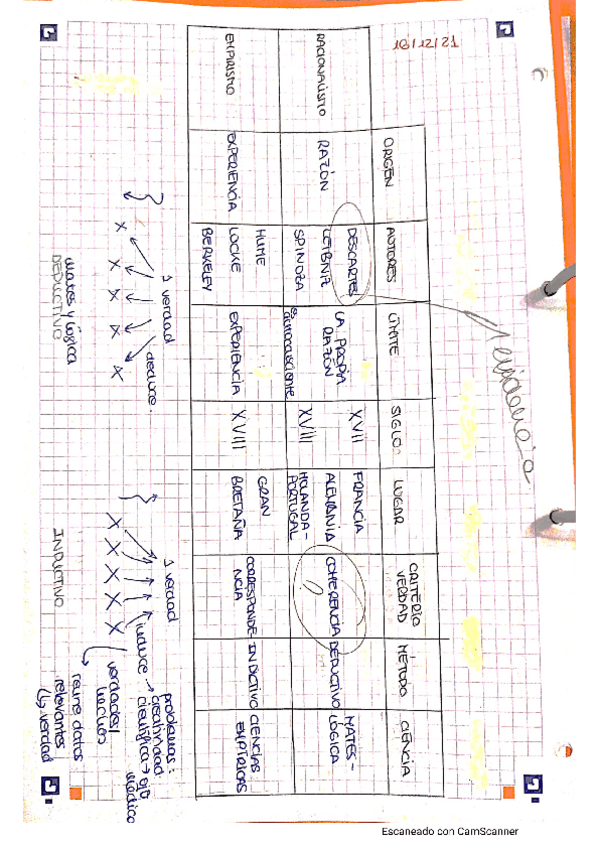 16/12/21
ORIGEN
AUTORES
LÍMITE
SIGLO
LUGAR
CRITERIO
VERDAD
MÉTODO
CIENCIA
RACIONALISTO
RAZÓN
DESCARTES
LEIBNIZ
SPINOZA
LA PROPIA
RAZÓN
es autoconsciente
XVII
XVIII
FRANCIA
ALEMANIA
HOLANDA-
PORTUGAL
COHERENCIA
DEDUCTIVO
MATES-
LÓGICA
EMPIRISMO
EXPERIENCIA
HUME
LOCKE
BERKELEY
EXPERIENCIA
XVIII
GRAN
BRETAÑA
CORRESPONDE-
NCIA
INDUCTIVO
CIENCIAS
EMPÍRICAS
evidencia
1 verdad
deduce.
X X X X X
mates y lógica
DEDUCTIVO
1 verdad
induce → problemas:
creatividad
científica → ojo
médico
X X X X X
verdades/
hechos
reune datos
relevantes
↳ verdad
INDUCTIVO
Escaneado con CamScanner